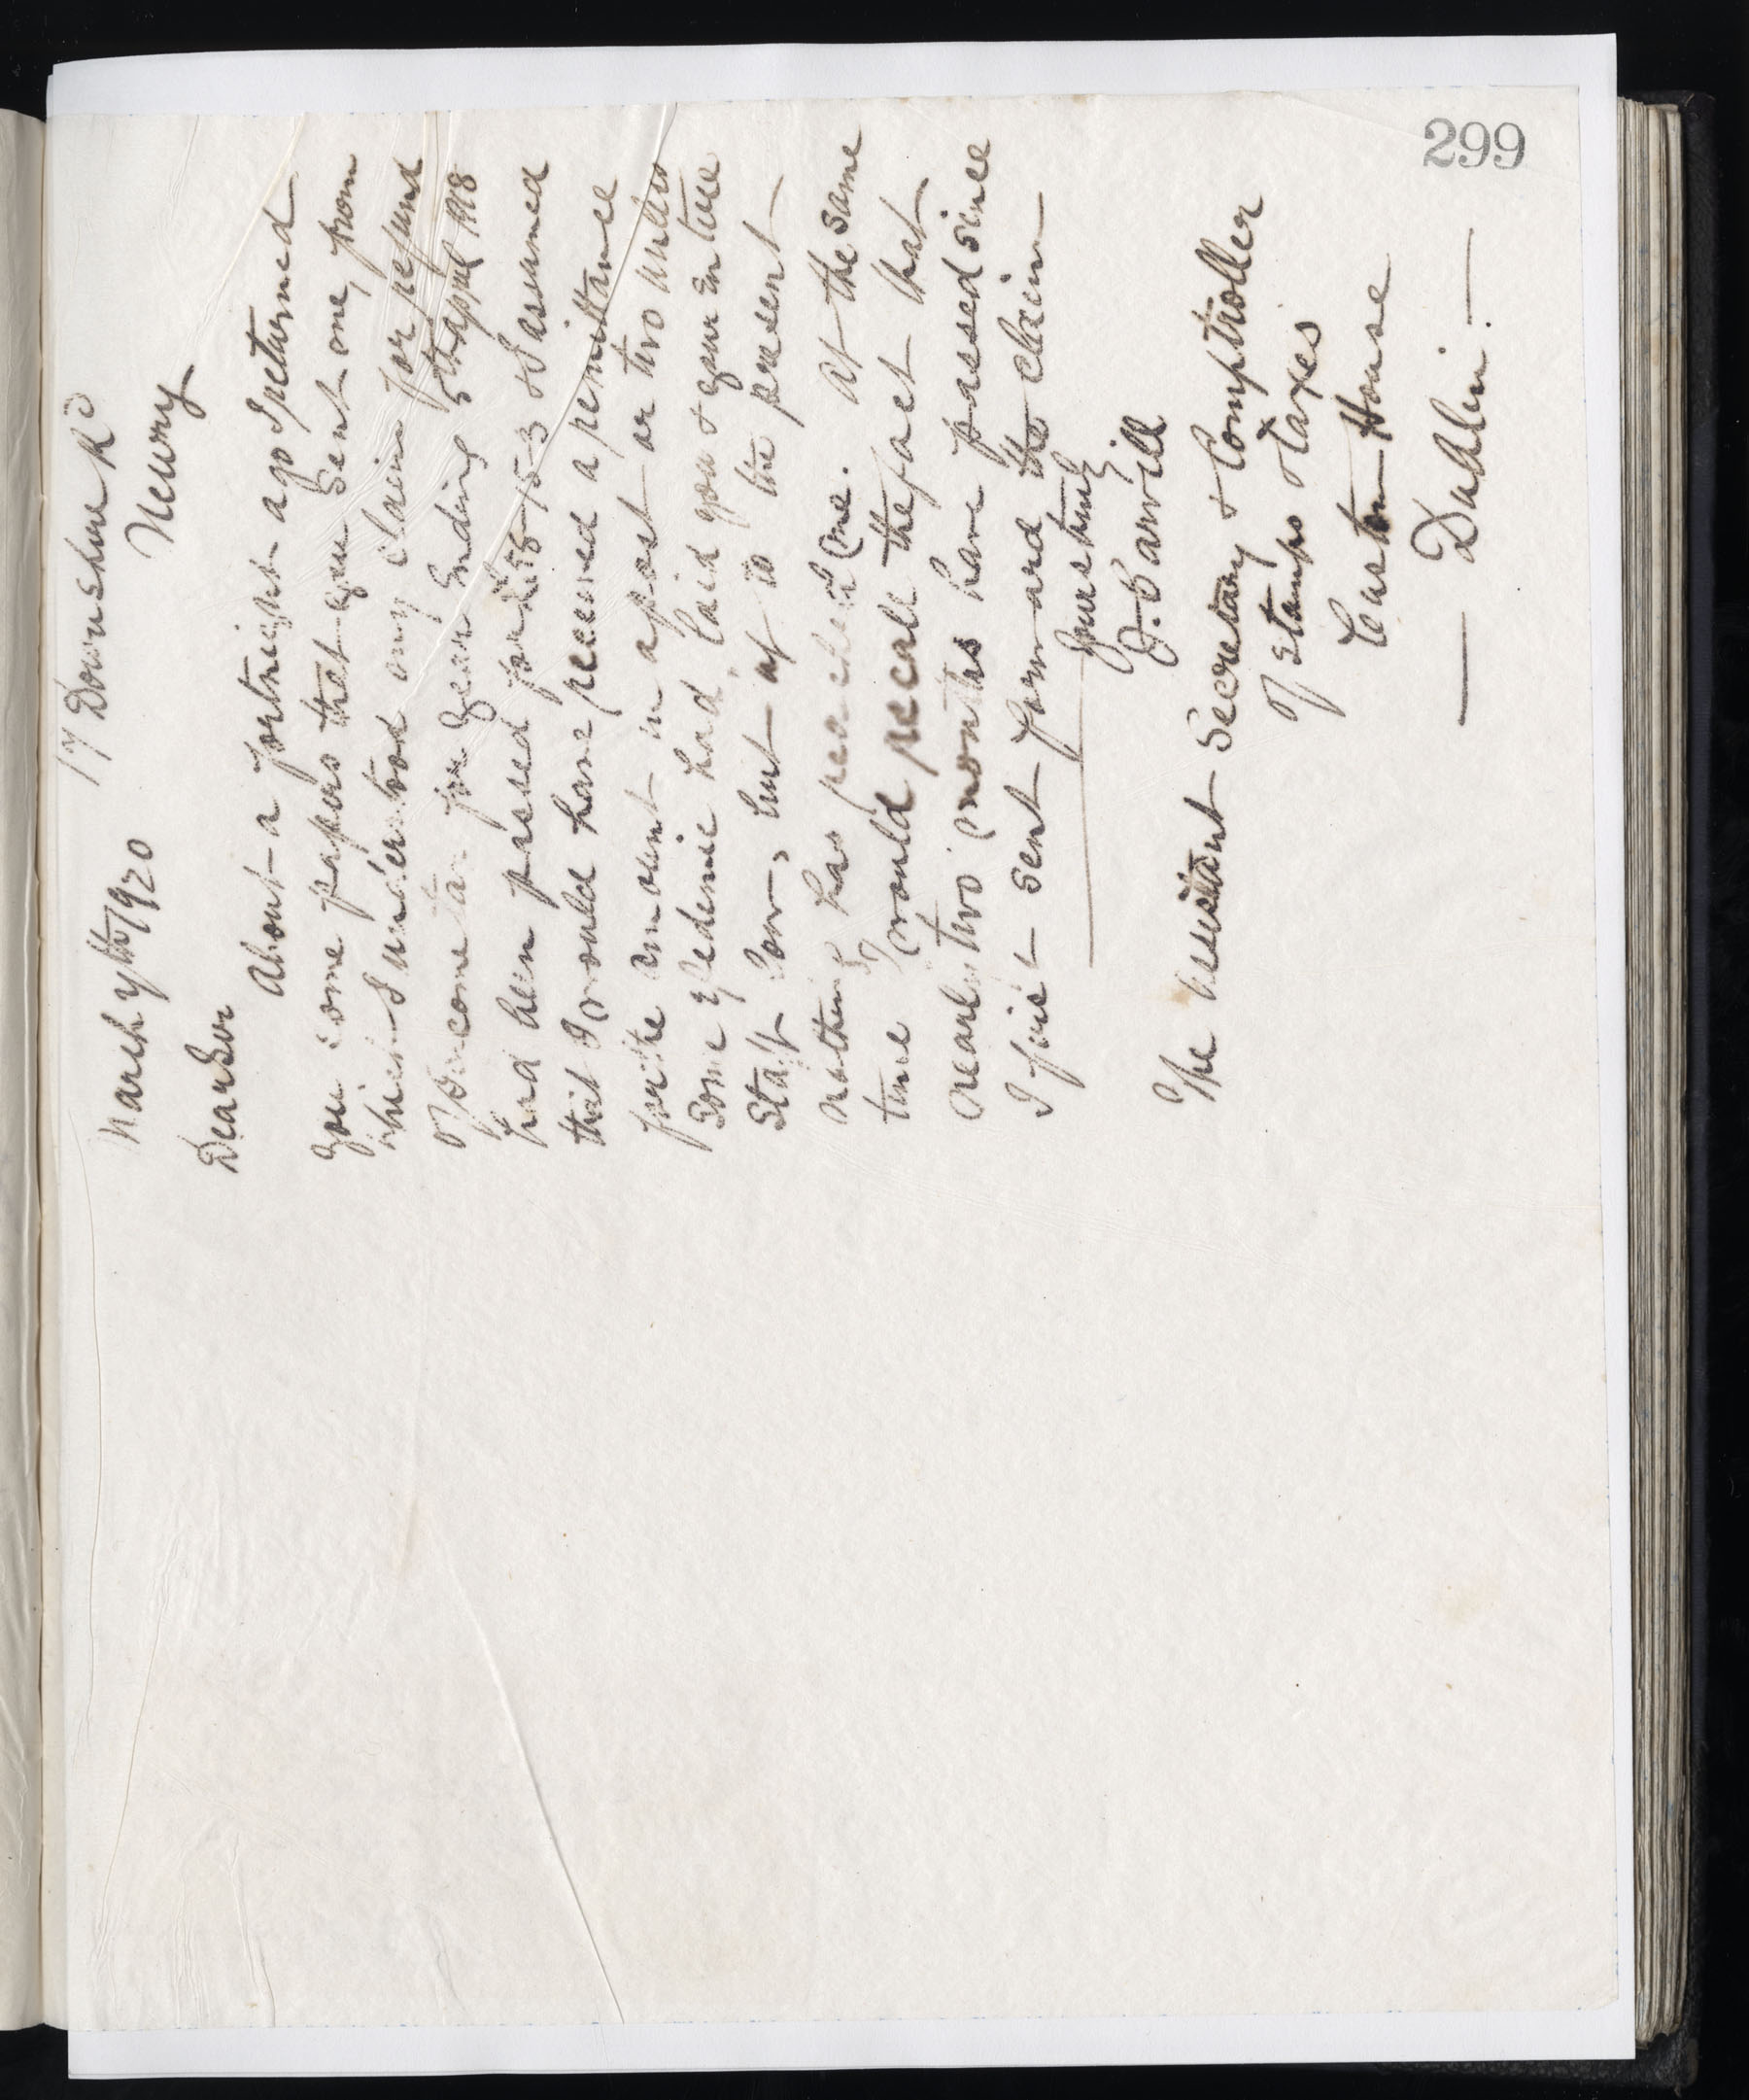 299
17 Downshire Rd
March 7th 1920 Newry
Dear Sir
About a fortnight ago I returned
you some papers that you sent me, from
which I understood my claim for refund
of Income Tax for year ending 5th april 1918
had been passed for £ 15-3 & I assumed
that I would have received a remittance
for the amount in a post or two unless
some epedemic had laid you & your entire
staff low, but up to the present
nothing has reached me. At the same
time I would recall the fact that
nearly two months have passed since
I first sent forward the claim
Yours truly
J. Carvill
The Assistant Secretary & Comptroller
of Stamps & Taxes
Custom House
Dublin.